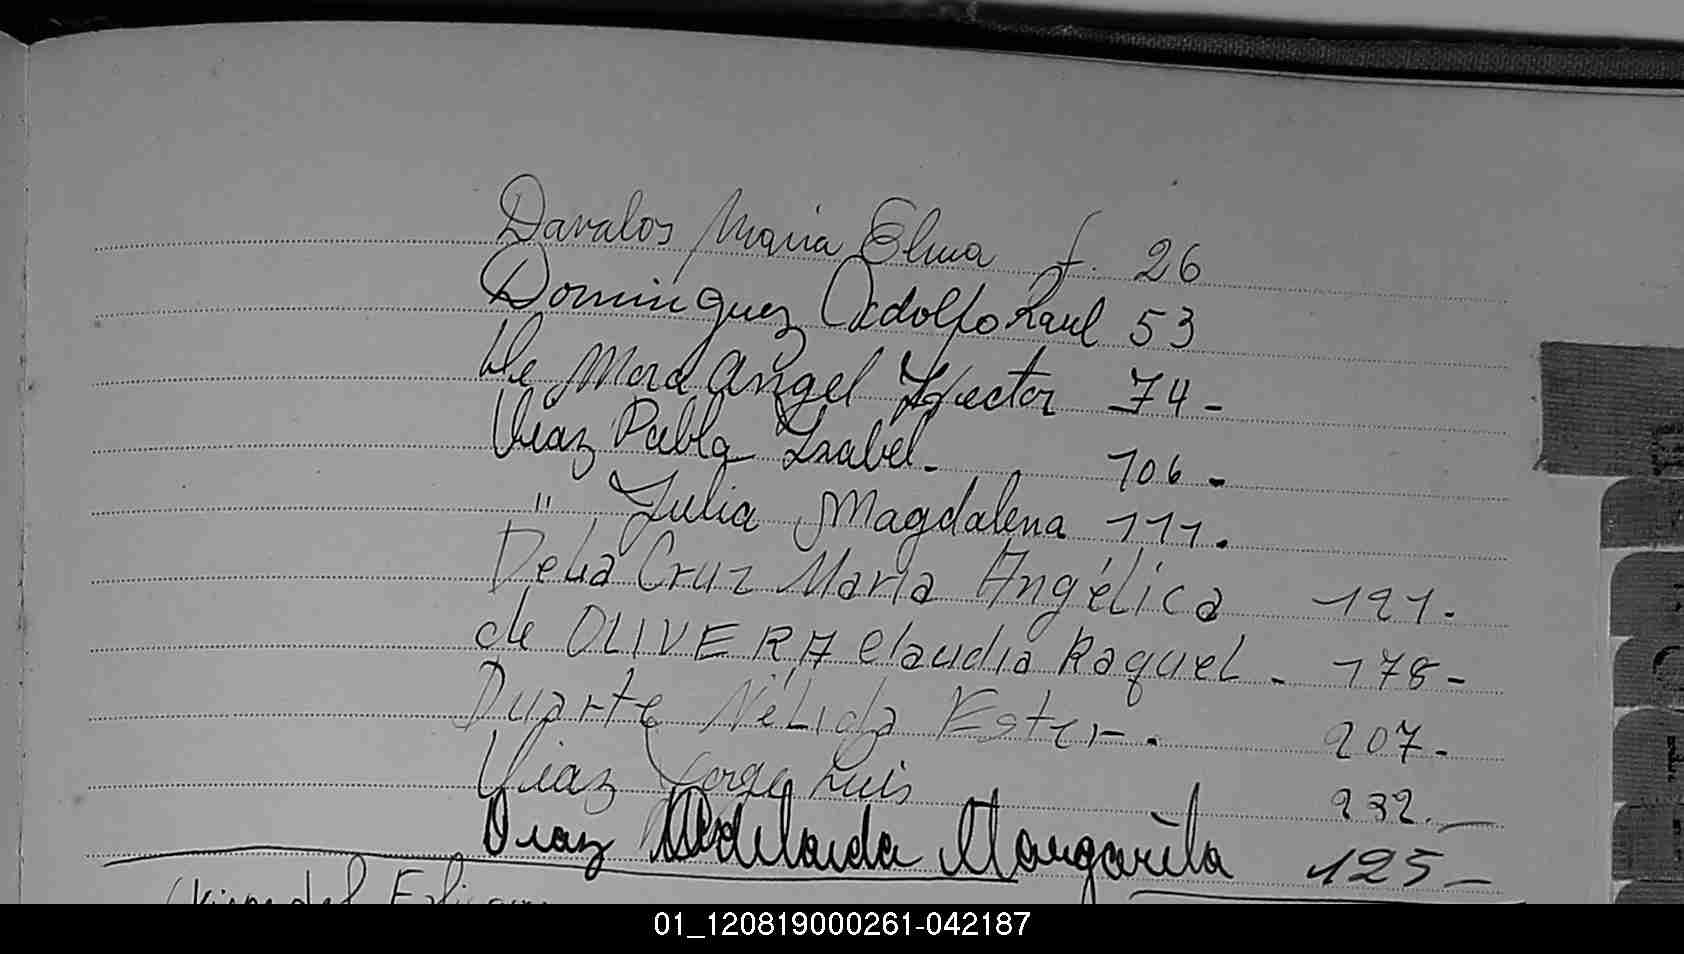 Davalos Maria Elma f. 26
Dominguez Adolfo Raul 53
De Mora Angel Hector 74-
Diaz Pabla Isabel- 106-
" Julia Magdalena 111.
De la Cruz María Angélica 121.
de OLIVERA Claudia Raquel- 178-
Duarte Nélida Ester-. 207-
Diaz Jorge Luis 232.-
Diaz Adelaida Margarita 125-
01_120819000261-042187